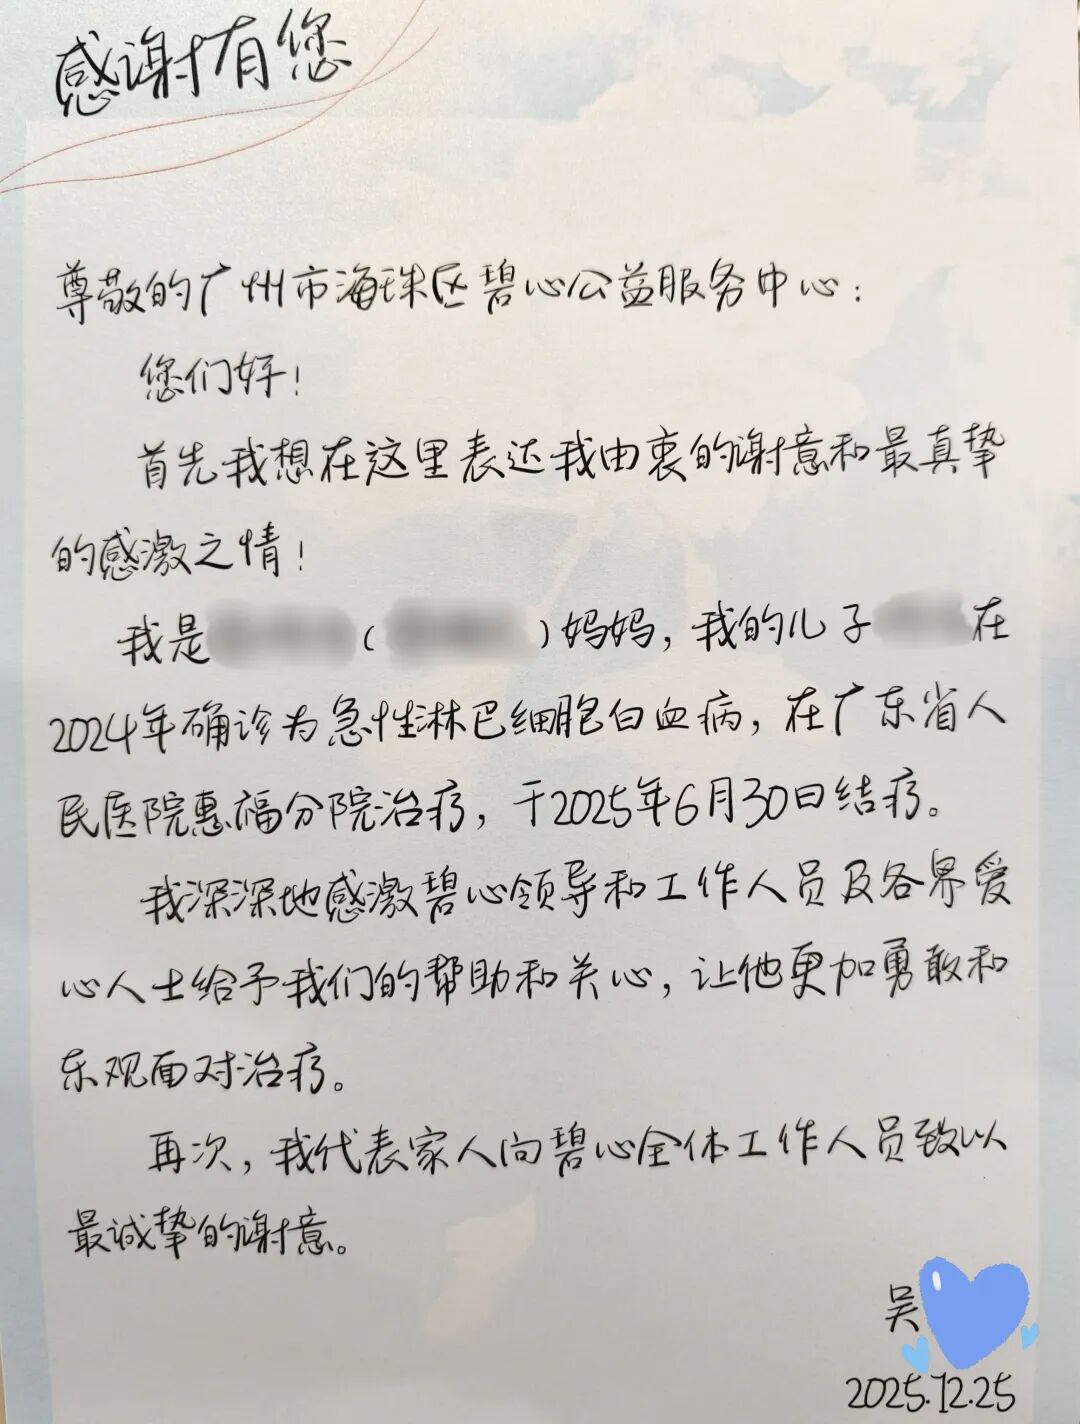 感谢有您
尊敬的广州市海珠区碧心公益服务中心：
您们好！
首先我想在这里表达我由衷的谢意和最真挚
的感激之情！
我是（）妈妈，我的儿子在
2024年确诊为急性淋巴细胞白血病，在广东省人
民医院惠福分院治疗，于2025年6月30日结疗。
我深深地感激碧心领导和工作人员及各界爱
心人士给予我们的帮助和关心，让他更加勇敢和
乐观面对治疗。
再次，我代表家人向碧心全体工作人员致以
最诚挚的谢意。
吴
2025.12.25